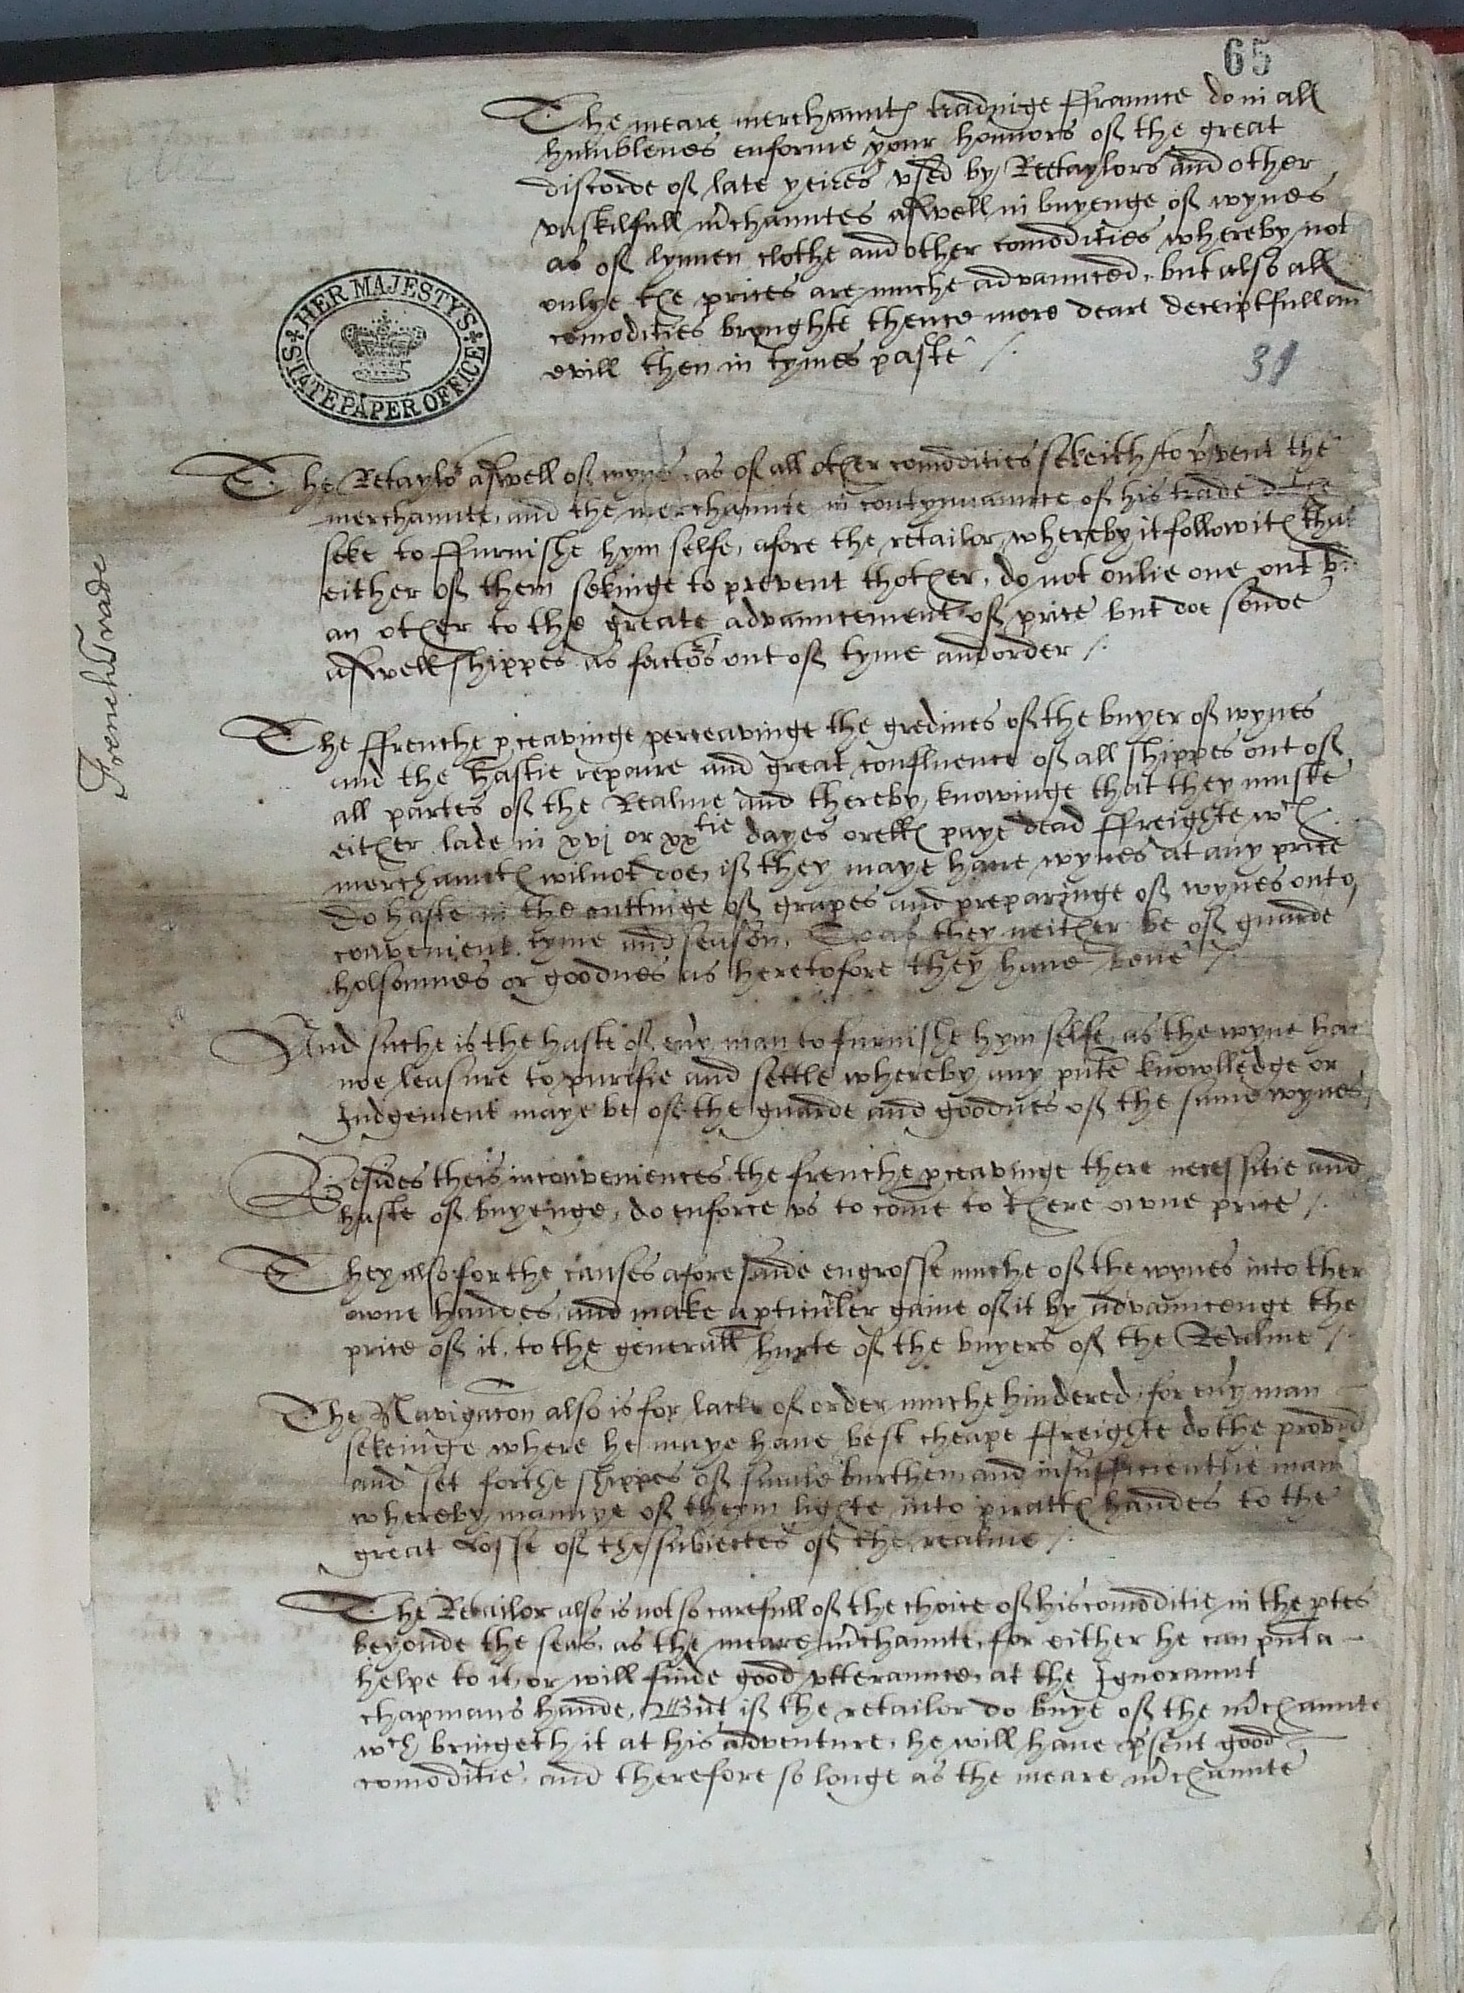 65
The meare merchauntes tradinge ffraunce do in all
humblenes enforme your honnors of the great
discorde of late yeires vsed by Reetaylors and other
vnskilfull m'chauntes aswell in buyenge of wynes
as of lynnen clothe and other comodities whereby not
onlye the prices are muche advaunced, but also all
comodities broughte thence more deare deceiptfull an
evill then in tymes paste /.
31
HER MAJESTY'S STATE PAPER OFFICE
The Retaylor aswell of wynes as of all other comodities sekeith to p'vent the
merchaunte, and the merchaunte in contynuaunce of his trade
seke to ffurnishe hym selfe, afore the retailor, whereby it followith that
either of them sekinge to prevent thother, do not onlie one out b
an other to the greate advauncement of price but doe sende
aswell shippes as factors out of tyme and order /.
French Trade
The ffrenche pceavinge perceavinge the gredines of the buyer of wynes
and the hastie repaire and great confluence of all shippes out of
all partes of the Realme and thereby knowinge that they muste
either lade in xvj or xxtie dayes or elles paye dead ffreighte wch
merchauntes will not doe, if they maye have wynes at any price
do haste in the cuttinge of grapes and preparinge of wynes out of
convenient tyme and season, they neither be of guarde
holsomnes or goodnes as heretofore they haue bene /.
And suche is the haste of eu'y man to furnishe hym selfe, as the wyne ha
noe leasure to purifie and settle whereby any p'nte knowlledge or
Judgement maye be of the guarde and goodnes of the same wynes /
Besides theis inconveniences the frenche pceavinge there necessitie and
haste of buyenge, do enforce vs to come to there owne price /.
They also for the causes aforesaide engrosse muche of the wynes into ther
owne handes, and make a pticuler gaine of it by advauncenge the
price of it, to the generall hurte of the buyers of the Realme /.
The Navigacon also is for lacke of order muche hindered, for eu'y man
sekeinge where he maye haue best cheape ffreighte dothe provid
and set forthe shippes of smale burthen and insufficientlie man
whereby mannye of theym lighte into pirattes handes to the
great Losse of the subiectes of the realme /.
The Retailor also is not so carefull of the choice of his comoditie in the ptes
beyonde the seas, as the meare m'chaunte, for either he can put a
helpe to it, or will finde good vtteraunce, at the Ignoraunt
chapmans hande, But if the retailor do buye of the m'chaunte
wch bringeth it at his adventure, he will haue p'sent good
comoditie, and therefore so longe as the meare m'chaunte